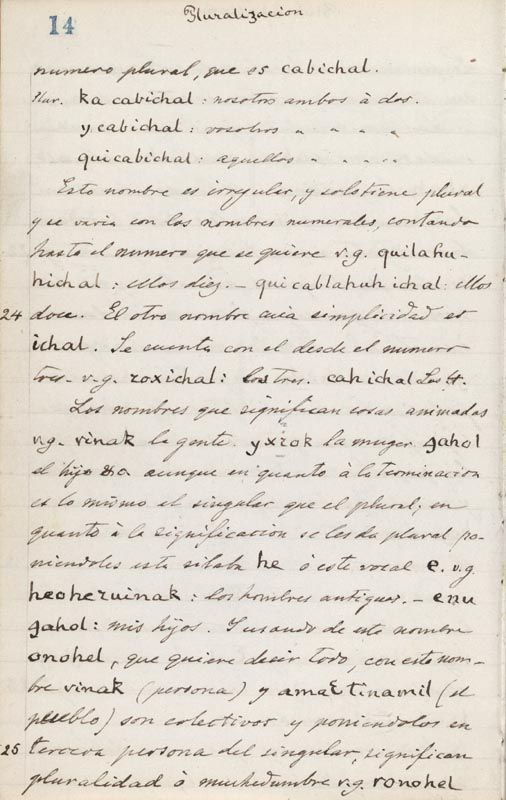 Pluralizacion
14
numero plural, que es cabichal.
Plur. ka cabichal: nosotros ambos à dos.
y cabichal: vosotros " " " "
quicabichal: aquellos " " " "
Esto nombre es irregular, y solo tiene plural
y se varia con los nombres numerales, contando
hasta el numero que se quiere v.g. quilahu-
hichal: ellos diez. - quicablahuhichal: ellos
24 doce. El otro nombre cuia simplicidad es
ichal. Se cuenta con el desde el numero
tres. v.g. roxichal: los tres. cahichal Los 4.
Los nombres que significan cosas animadas
v.g. vinak la gente. yxrok la muger gahol
el hijo &a aunque en quanto à la terminacion
es lo mismo el singular que el plural; en
quanto à la significacion se les da plural po-
niendoles esta silaba he ó este vocal e. v.g.
heoheruinak: los hombres antiguos. - enu
gahol: mis hijos. Y usando de este nombre
onohel, que quiere decir todo, con este nom-
bre vinak (persona) y amaEtinamil (el
pueblo) son colectivos y poniendolos en
25 tercera persona del singular, significan
pluralidad ó muchedumbre v.g. ronohel